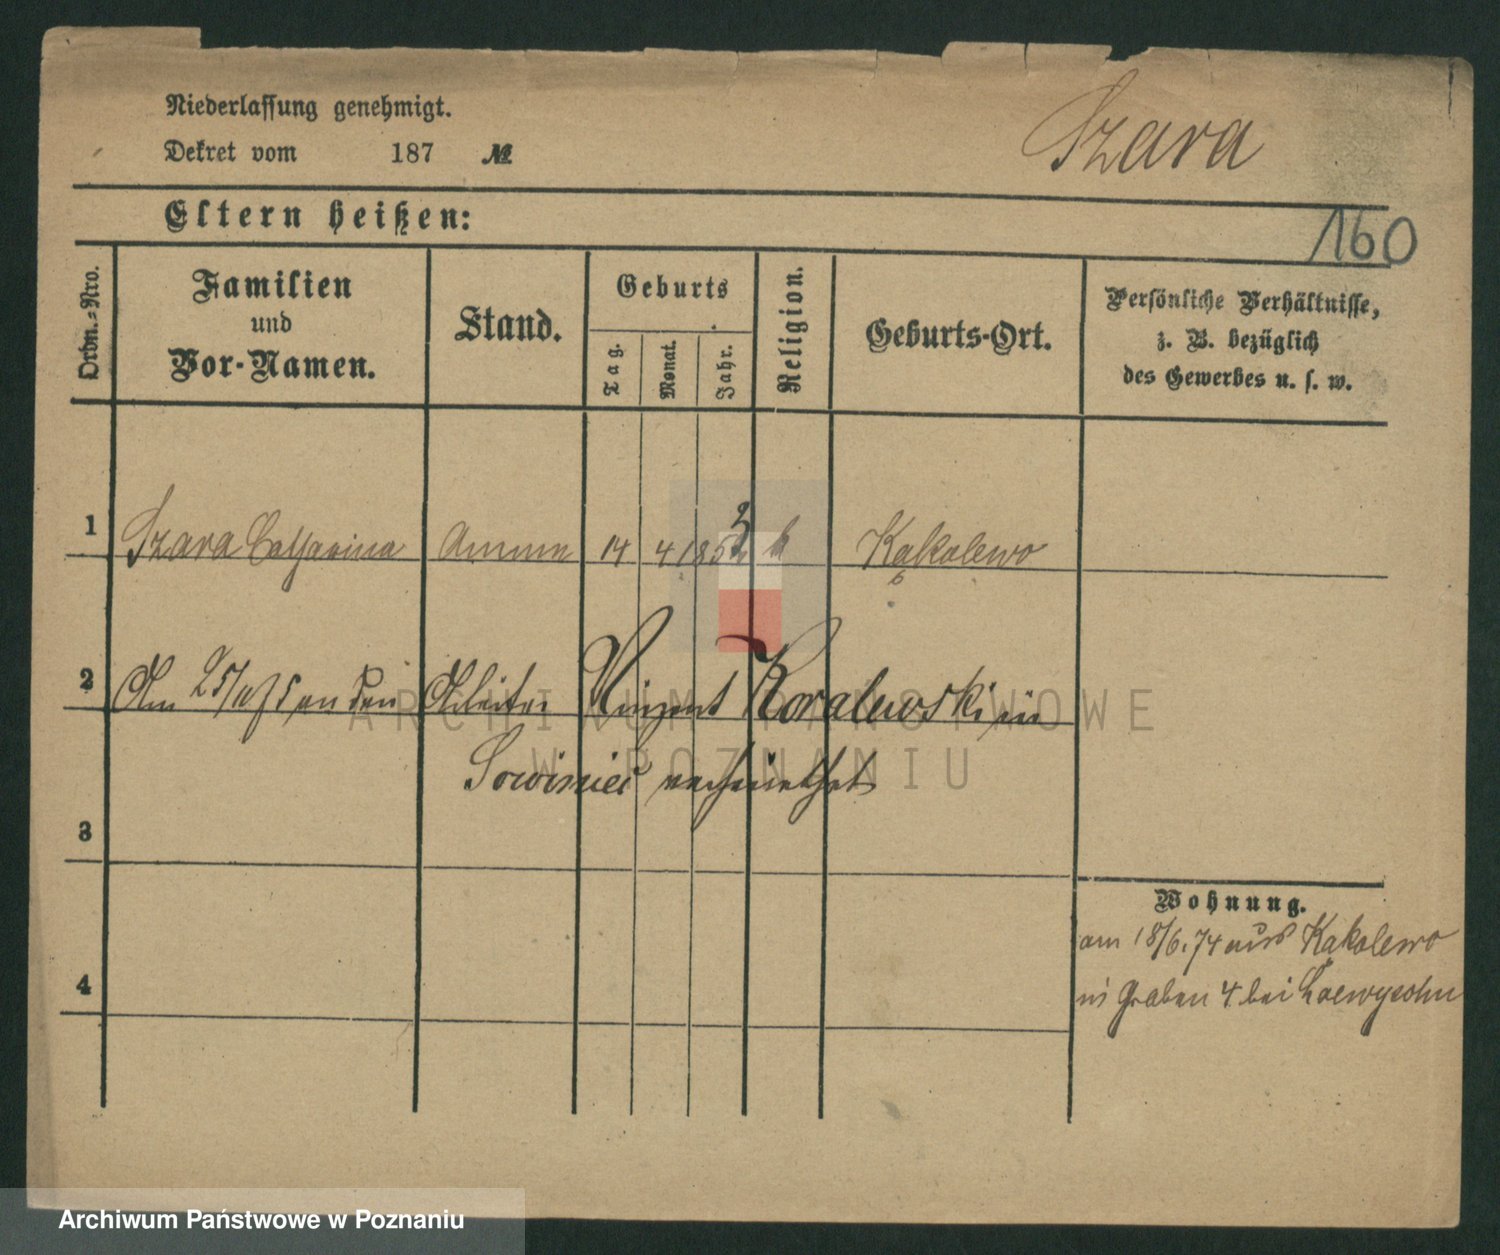 Niederlassung genehmigt.
Dekret vom 187 №
Szara
Eltern heißen:
160
Ordn.-Nro.
Familien
und
Vor-Namen.
Stand.
Geburts
Tag.
Monat.
Jahr.
Religion.
Geburts-Ort.
Persönliche Verhältnisse,
z. B. bezüglich
des Gewerbes u. s. w.
1 Szara Catharina Amme 14 4 185 k Kąkolewo
2 Am 25/11 75 an den Arbeiter Vinzent Kowalewski in
Sowiniec verheirathet
3
Wohnung.
am 18/6.74 aus Kąkolewo
4
n/ Graben 4 bei Loewysohn
ARCHIWUM PAŃSTWOWE
W POZNANIU
Archiwum Państwowe w Poznaniu